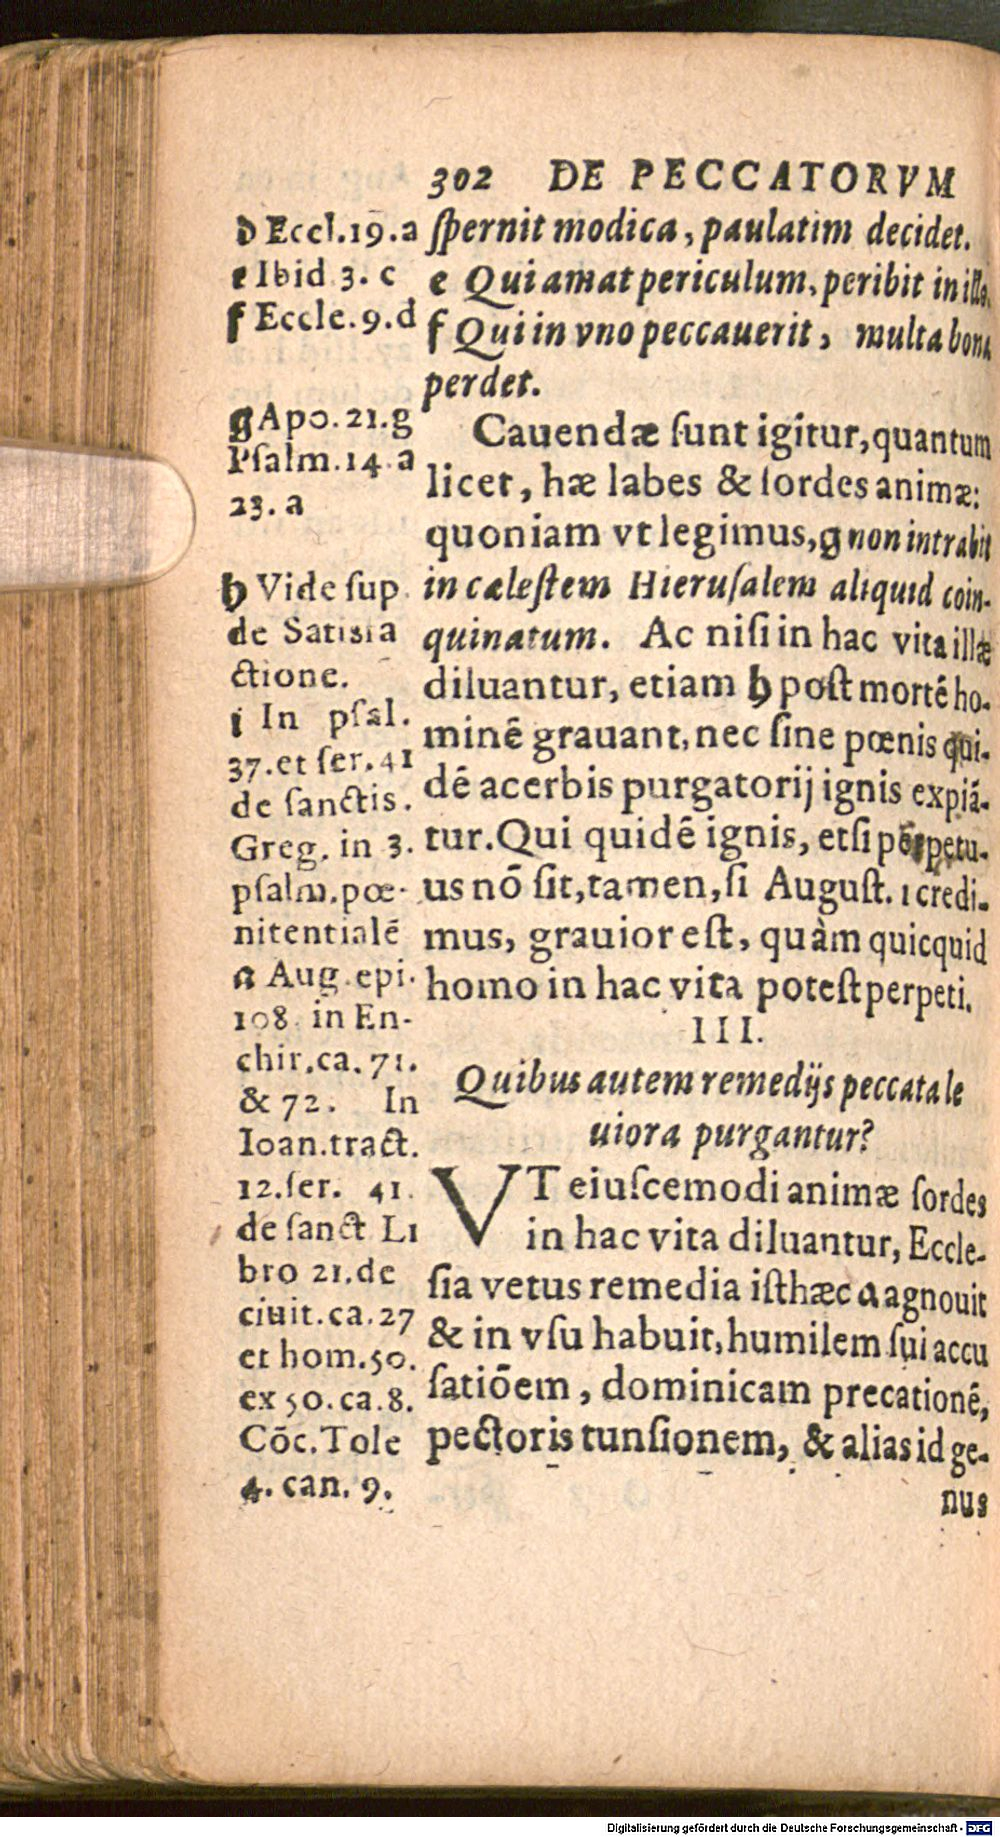 302 DE PECCATORVM
ſpernit modica, paulatim decidet.
e Qui amat periculum, peribit in illo.
f Qui in vno peccauerit, multa bona
perdet.
Cauendæ ſunt igitur, quantum
licet, hæ labes & ſordes animæ:
quoniam vt legimus, g non intrabit
in cæleſtem Hieruſalem aliquid coin-
quinatum. Ac niſi in hac vita illæ
diluantur, etiam h poſt mortē ho-
minē grauant, nec ſine pœnis qui-
dē acerbis purgatorij ignis expiā-
tur. Qui quidē ignis, etſi perpetu-
us nō ſit, tamen, ſi Auguſt. i credi-
mus, grauior eſt, quàm quicquid
homo in hac vita poteſt perpeti.
III.
Quibus autem remedijs peccata le
uiora purgantur?
VT eiuſcemodi animæ ſordes
in hac vita diluantur, Eccle-
ſia vetus remedia iſthæc a agnouit
& in vſu habuit, humilem ſui accu
ſatiōem, dominicam precationē,
pectoris tunſionem, & alias id ge-
nus
d Eccl.19.a
e Ibid 3. c
f Eccle.9.d
g Apo.21.g
Pſalm.14.a
23. a
h Vide ſup
de Satisfa
ctione.
i In pſal.
37.et ſer.41
de ſanctis.
Greg. in 3.
pſalm.pœ-
nitentialē
a Aug.epi.
108. in En-
chir.ca.71.
& 72. In
Ioan.tract.
12.ſer. 41.
de ſanct Li
bro 21.de
ciuit.ca.27
et hom.50.
ex 50.ca.8.
Cōc.Tole
4. can. 9.
Digitalisierung gefördert durch die Deutsche Forschungsgemeinschaft - DFG